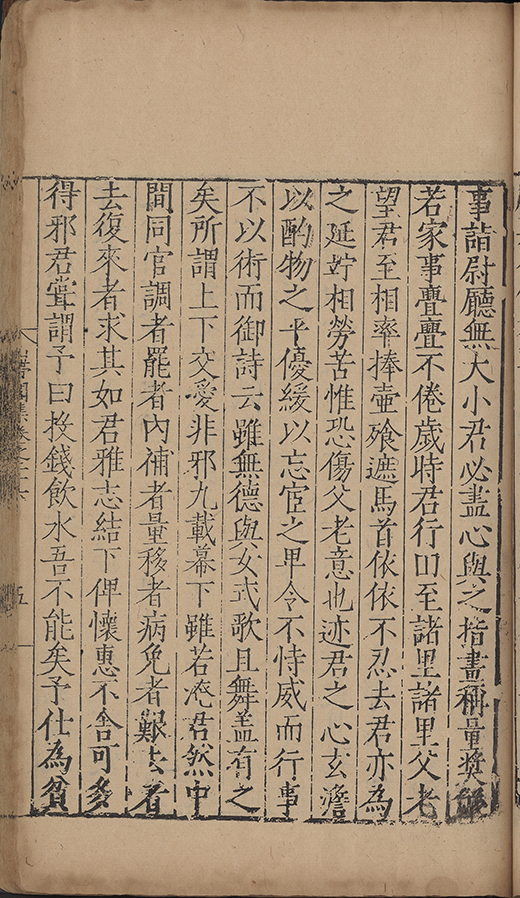 事詣尉廳無大小君必盡心與之指畫稱量奨
若家事亹亹不倦歲時君行田至諸里諸里父老
望君至相率捧壷飱遮馬首依依不忍去君亦為
之延竚相勞苦惟恐傷父老意也迹君之心玄澹
以酌物之平優緩以忘宦之卑令不恃威而行事
不以術而御詩云雖無德與女式歌且舞盖有之
矣所謂上下交愛非邪九載幕下雖若淹君然中
間同官調者罷者內補者量移者病免者艱去者
去復來者求其如君雅志結下俾懷惠不舍可多
得邪君嘗謂予曰投錢飲水吾不能矣予仕為貧
集卷之十六
五